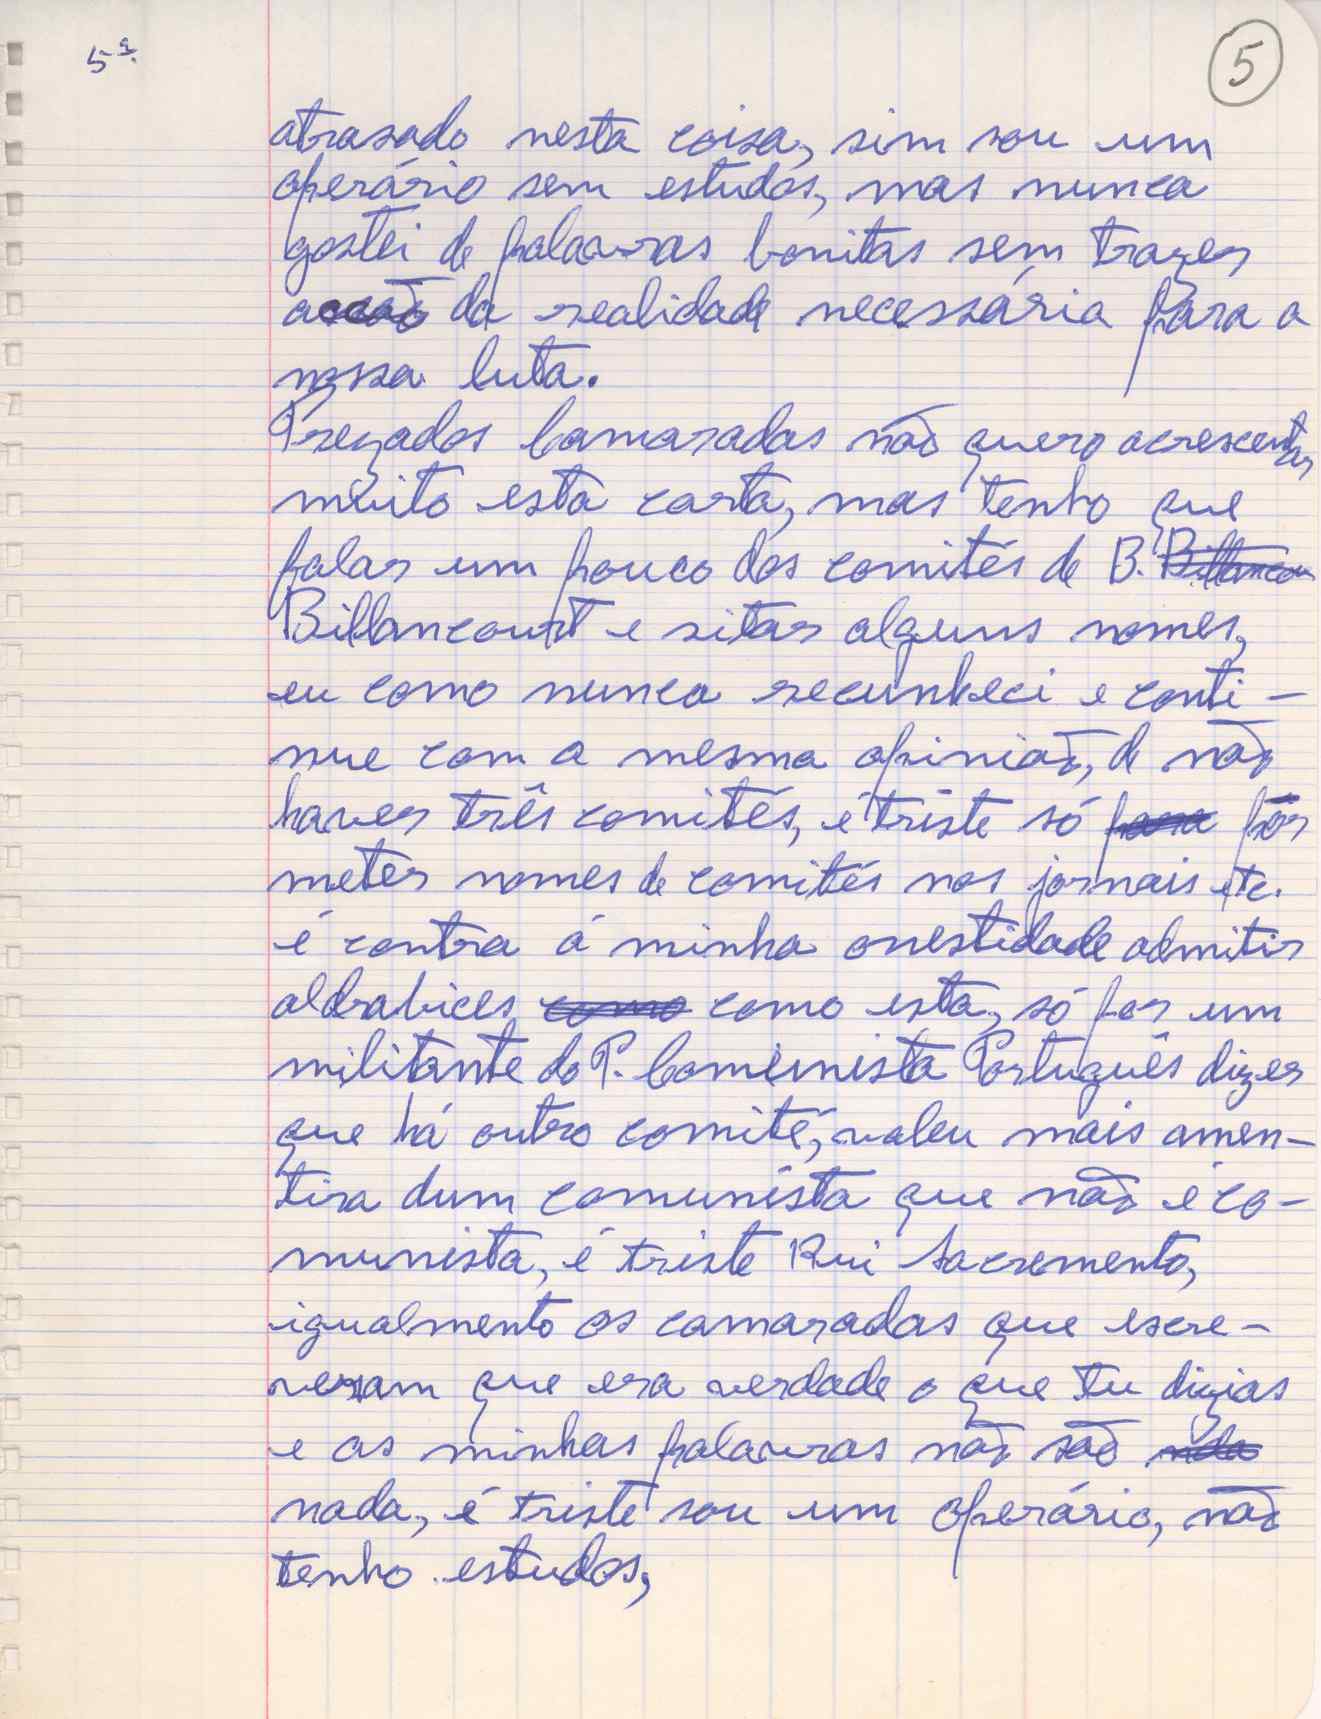 5ª.
5
atrasado nesta coisa, sim sou um
operário sem estudos, mas nunca
gostei de palavras bonitas sem trazer
acção da realidade necessária para a
nossa luta.
Prezados Camaradas não quero acrescentar
muito esta carta, mas tenho que
falar um pouco dos comités de B. Billancou
Billancourt e sitar alguns nomes,
eu como nunca recunheci e conti-
nue com a mesma opinião, de não
haver três comités, é triste só para pôr
meter nomes de comités nos jornais etc.
é contra á minha onestidade admitir
aldrabices como como esta, só por um
militante do P. Comunista Português dizer
que há outro comité, valeu mais amen-
tira dum comunista que não é co-
munista, é triste Rui Sacremento,
igualmento os camaradas que escre-
veram que era verdade o que tu dizias
e as minhas palavras não são
nada, é triste sou um operário, não
tenho estudos,